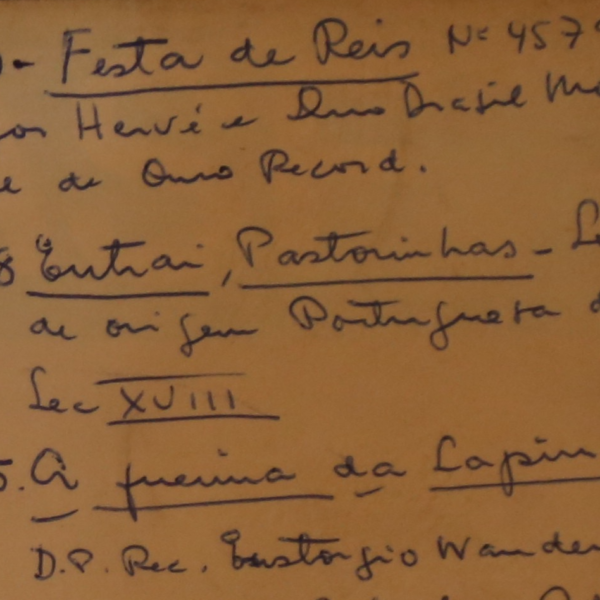 - Festa de Reis Nº 457
Hervé e Duo Brasil
de Ouro Record.
Entrai, Pastorinhas -
de origem Portuguesa
Sec XVIII
5. A queima da Lapin
D.P. Rec. Eustorgio Wander